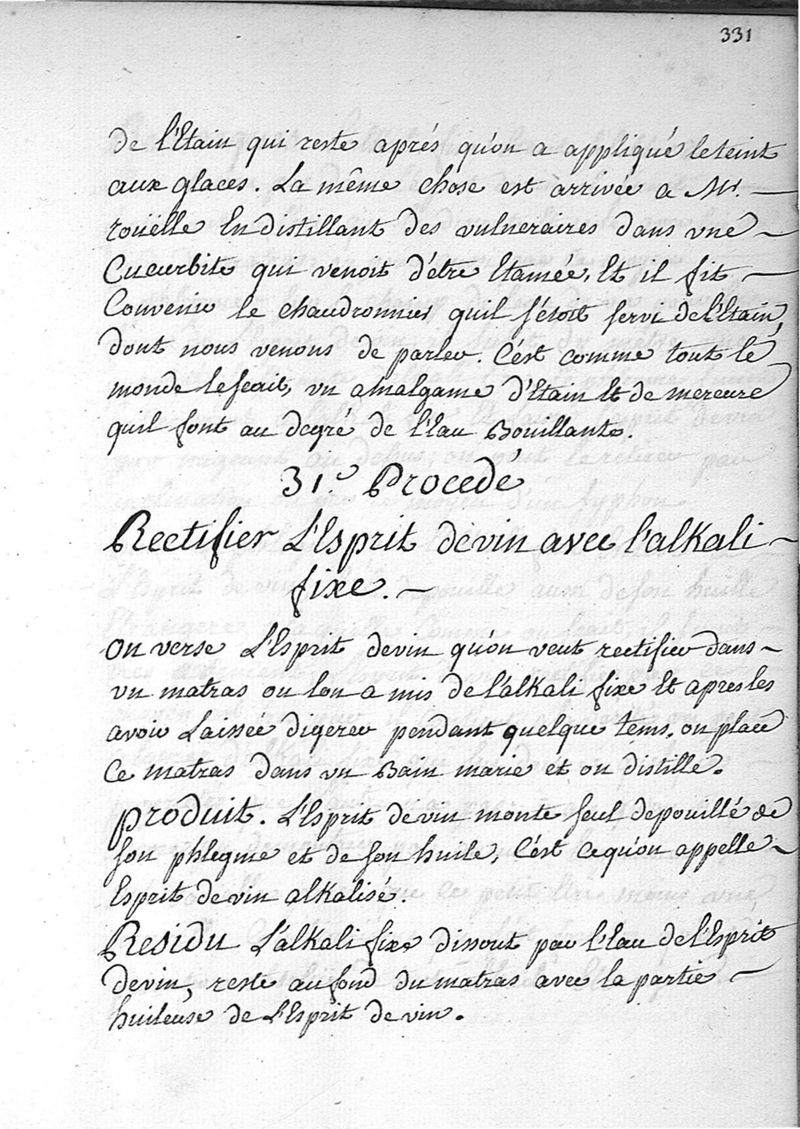 331
de l'Etain qui reste aprés qu'on a appliqué le teint
aux glaces. La même chose est arrivée a Mr. —
roüelle En distillant des vulneraires dans vne —
Cucurbite qui venoit d'être Etamée, Et il fit —
Convenir le chaudronnier quil s'étoit servi de l'Etain,
dont nous venons de parler. C'est comme tout le
monde le scait, vn amalgame d'Etain Et de mercure
quil font au degré de l'Eau Bouillante.
31.e Procedé
Rectifier L'Esprit de vin avec l'alkali —
fixe. —
on verse L'Esprit de vin qu'on veut rectifier dans —
vn matras ou lon a mis de l'alkali fixe Et apres les
avoir Laissée digerer pendant quelque tems, on place
Ce matras dans vn Bain marie et on distille.
produit. L'Esprit de vin monte seul depouillé de
son phlegme et de son huile, C'est ce qu'on appelle —
Esprit de vin alkalisé.
Residu L'alkali fixe dissout par l'Eau de l'Esprit
de vin, reste au fond du matras avec la partie —
huileuse de L'Esprit de vin.